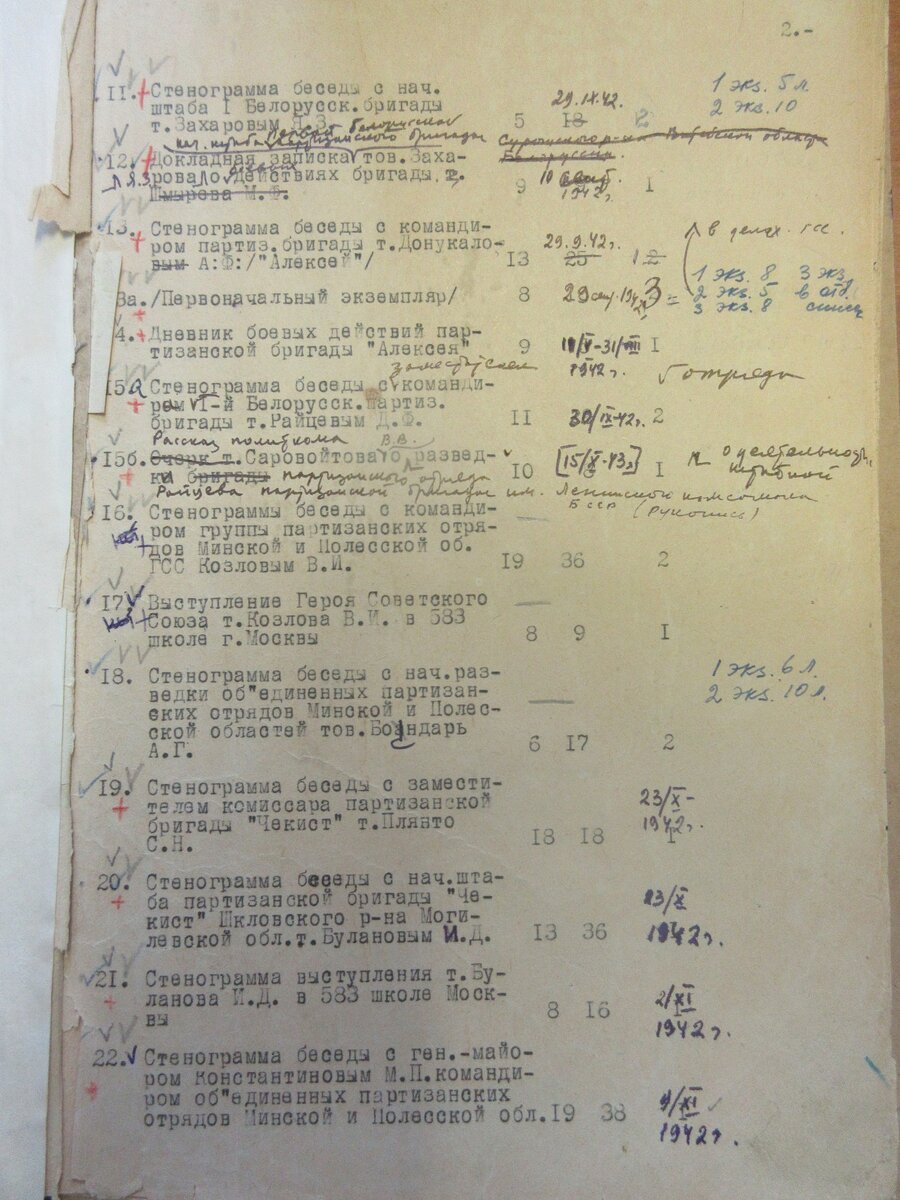 2.-
11. Стенограмма беседы с нач.
штаба I Белорусск.бригады
т.Захаровым Я.З. 5 18 2
29.IX.42.
1 экз. 5 л.
2 экз. 10
нач. штаба Первой белорусской партизанской бригады
Сурожского р-на Витебской области
Белоруссии.
12. Докладная записка тов. Заха-
рова Я.З. о действиях бригады т.
Шмырева М.Ф. 9 1
10 сент.
1942 г.
13. Стенограмма беседы с команди-
ром партиз.бригады т.Донукало-
вым А:Ф:/"Алексей"/ 13 25 1 2
29.9.42 г.
в делах. ГСС.
3а./Первоначальный экземпляр/ 8 29 сен. 1942 3 =
1 экз. 8 3 экз.
2 экз. 5 в отд.
3 экз. 8
4. Дневник боевых действий пар-
тизанской бригады "Алексея" 9 I
1942 г.
6 отряда
заместителем
15а Стенограмма беседы с команди-
ром I-й Белорусск.партиз.
бригады т.Райцевым Д.Ф. 11 30/IX-42г. 2
Рассказ политкома В.В.
15б. Очерк т. Саровойтова о развед-
ки бригады партизанского отряда 10 [15/X-43г] I
о деятельност.
штабной
Райцева партизанской бригады им. Ленинского комсомола
БССР (рукопись)
16. Стенограммы беседы с команди-
ром группы партизанских отря-
дов Минской и Полесской об.
ГСС Козловым В.И. 19 36 2
17. Выступление Героя Советского
Союза т.Козлова В.И. в 583
школе г.Москвы 8 9 I
18. Стенограмма беседы с нач.раз-
ведки об"единенных партизан-
ских отрядов Минской и Полес-
ской областей тов.Бондарь
А.Г. 6 17 2
1 экз. 6 л.
2 экз. 10 л.
19. Стенограмма беседы с замести-
телем комиссара партизанской
бригады "Чекист" т.Плянто
С.Н. 18 18 I
23/X-
1942г.
20. Стенограмма беседы с нач.шта-
ба партизанской бригады "Че-
кист" Шкловского р-на Моги-
левской обл.т.Булановым И.Д. 13 36
23/X
1942г.
21. Стенограмма выступления т.Бу-
ланова И.Д. в 583 школе Моск-
вы 8 16 I
2/XI
1942г.
22. Стенограмма беседы с ген.-майо-
ром Константиновым М.П.команди-
ром об"единенных партизанских
отрядов Минской и Полесской обл.19 38
9/XI
1942г.